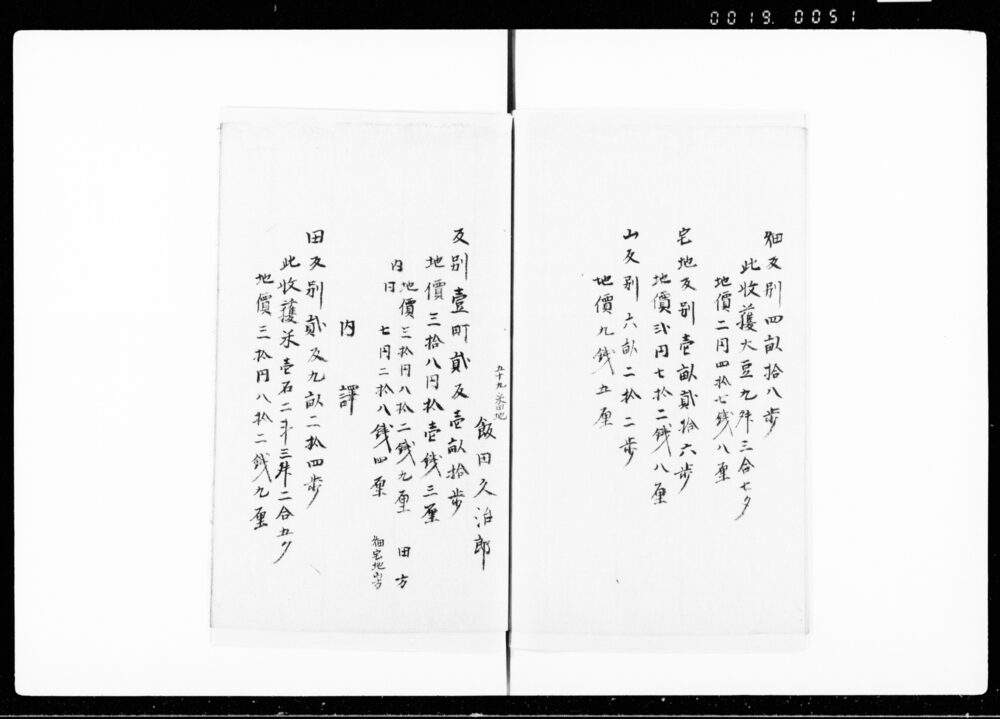 0019. 0051
畑反別四畝拾八歩
此收穫大豆九舛三合七夕
地價二円四拾七銭八厘
宅地反別壱畝貳拾六歩
地價弐円七拾二銭八厘
山反別六畝二拾二歩
地價九銭五厘
五十九番地
飯田久治郎
反別壹町貳反壱畝拾歩
地價三拾八円拾壱銭三厘
内 地價三拾円八拾二銭九厘 田方
同 七円二拾八銭四厘 畑宅地山方
内譯
田反別貳反九畝二拾四歩
此收穫米壱石二斗三舛二合五夕
地價三拾円八拾二銭九厘